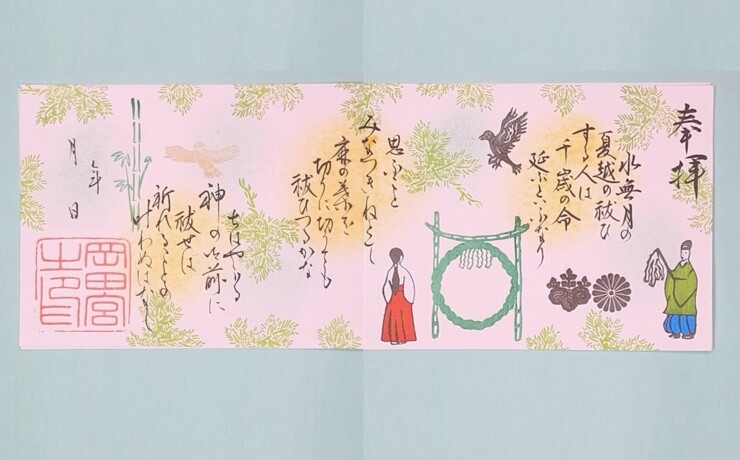 奉拝
水無月の
夏越の祓ひ
する人は
千歳の命
延ぶといふなり
思ふこと
みなつきねとて
麻の葉を
切りに切りても
祓ひつるかな
ちはやふる
神の御前に
祓せは
祈れることの
叶わぬはなし
年
月 日
岡田宮
之印